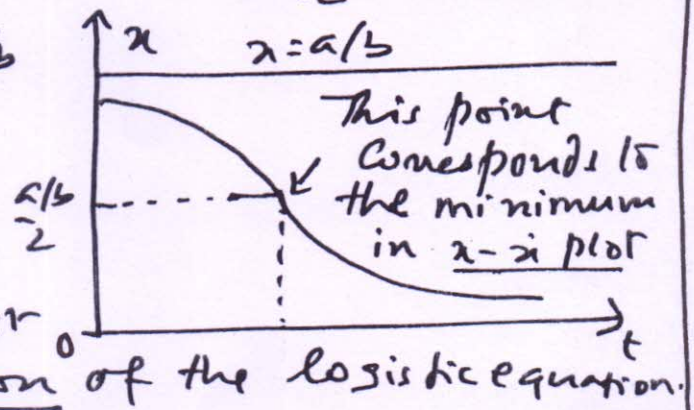 b
x x=a/b
This point
Corresponds to
a/b the minimum
2 in x-ẋ plot
r
0 t
on of the logistic equation.